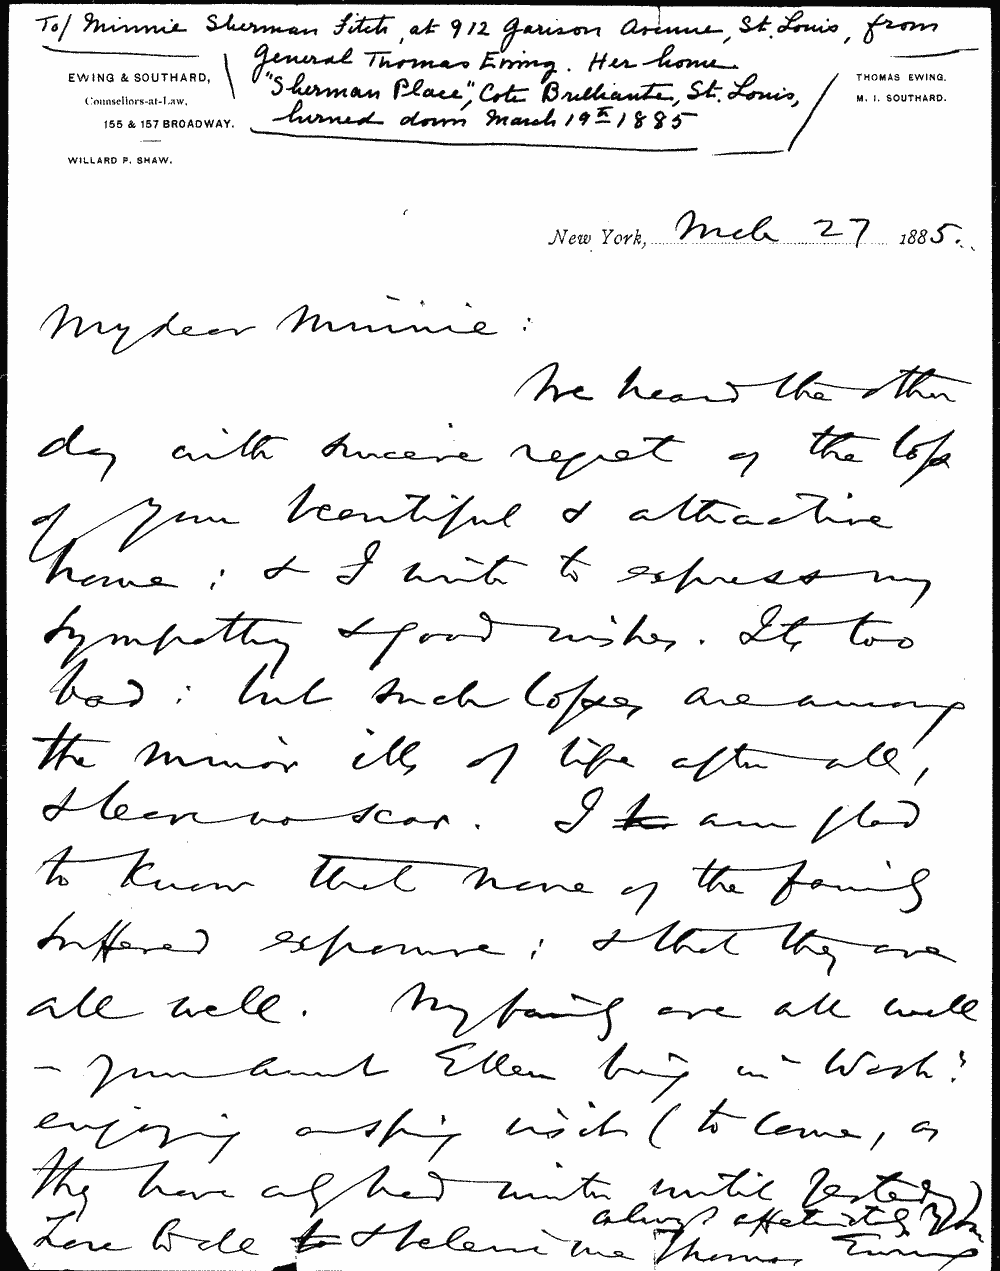 To/ Minnie Sherman Fitch, at 912 Garison Avenue, St. Louis, from
General Thomas Ewing. Her home
"Sherman Place", Cote Brilliante, St. Louis,
burned down March 19th 1885
EWING & SOUTHARD,
Counsellors-at-Law,
155 & 157 BROADWAY.
WILLARD P. SHAW.
THOMAS EWING.
M. I. SOUTHARD.
New York, Mch 27 1885.
My dear Minnie :
We heard the other
day with sincere regret of the loss
of your beautiful & attractive
home ; & I write to express my
sympathy & good wishes. Its too
bad : but such losses are among
the minor ills of life after all,
& leave no scar. I am glad
to know that none of the family
suffered exposure ; & that they are
all well. My family are all well
- your aunt Ellen being in Wash:
enjoying a spring visit (to come, as
they have only had winter until yesterday)
Love to all & believe me
always affectionately Yours
Thomas Ewing